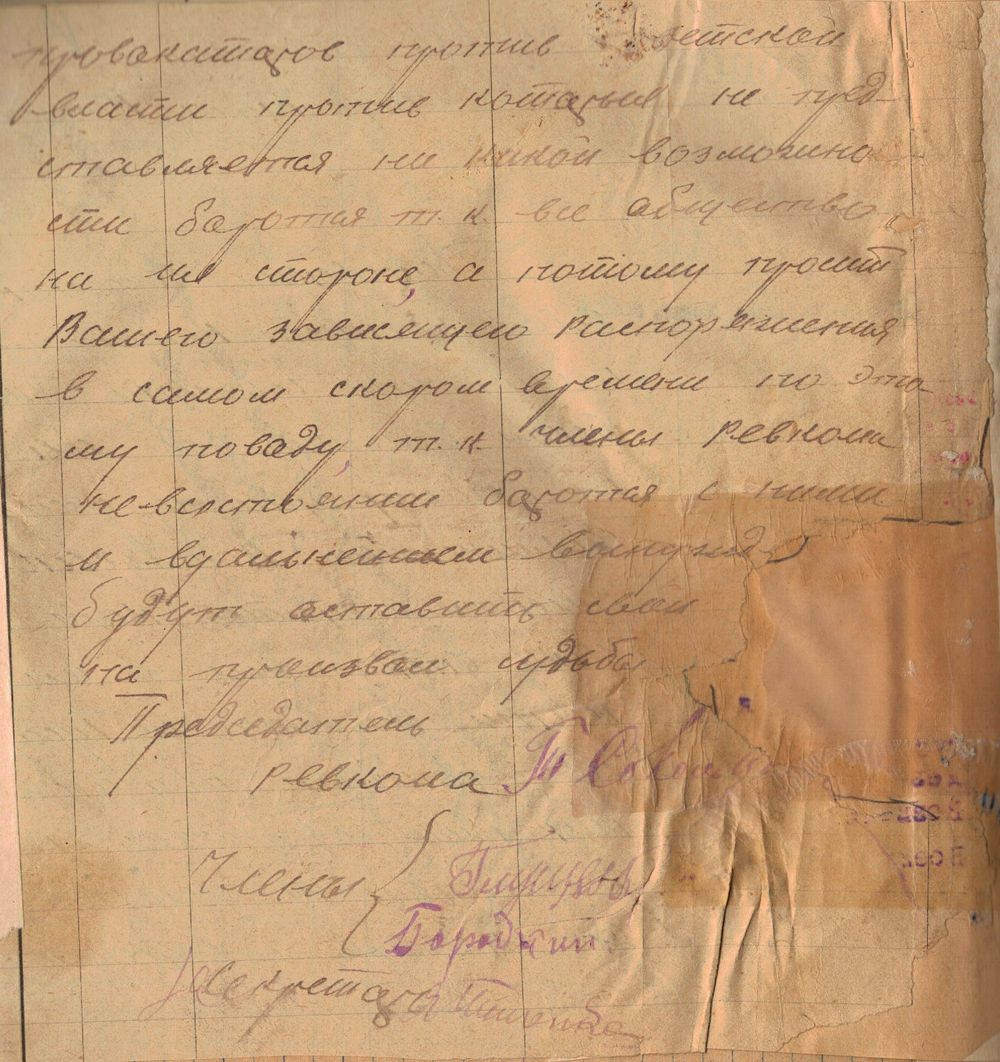 провакатаров против етской
власти против которых не пред
ставляется ни какой возможно
сти боротся т.к. все общество
на их стороне, а потому просит
Вашего зависящего распоряжения
в самом скором времени по эта
му поваду, т.к. члены Ревкома
боротся с ними
и вдальнейшем
будут оставить свои
на произвол судьбы
Председатель
ревкома
Члены
Бородкин
Секретарь